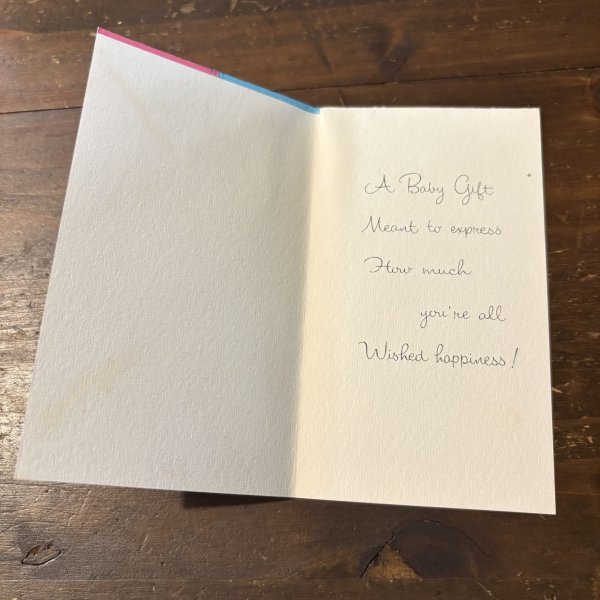 A Baby Gift
Meant to express
How much
you're all
Wished happiness!